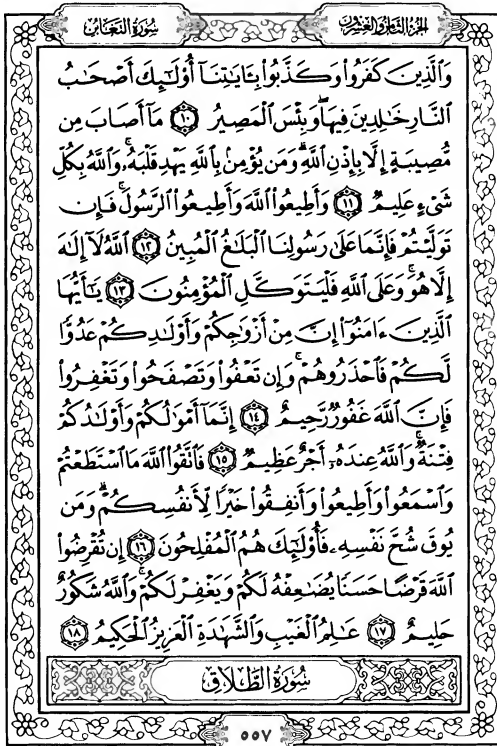 سُورَةُ التَّغَابُنِ
الجُزءُ الثَّامِنُ وَالعِشرُونَ
وَالَّذِينَ كَفَرُوا۟ وَكَذَّبُوا۟ بِـَٔايَـٰتِنَآ أُو۟لَـٰٓئِكَ أَصْحَـٰبُ
ٱلنَّارِ خَـٰلِدِينَ فِيهَا ۖ وَبِئْسَ ٱلْمَصِيرُ ١٠ مَآ أَصَابَ مِن
مُّصِيبَةٍ إِلَّا بِإِذْنِ ٱللَّهِ ۗ وَمَن يُؤْمِنۢ بِٱللَّهِ يَهْدِ قَلْبَهُۥ ۚ وَٱللَّهُ بِكُلِّ
شَىْءٍ عَلِيمٌ ١١ وَأَطِيعُوا۟ ٱللَّهَ وَأَطِيعُوا۟ ٱلرَّسُولَ ۚ فَإِن
تَوَلَّيْتُمْ فَإِنَّمَا عَلَىٰ رَسُولِنَا ٱلْبَلَـٰغُ ٱلْمُبِينُ ١٢ ٱللَّهُ لَآ إِلَـٰهَ
إِلَّا هُوَ ۚ وَعَلَى ٱللَّهِ فَلْيَتَوَكَّلِ ٱلْمُؤْمِنُونَ ١٣ يَـٰٓأَيُّهَا
ٱلَّذِينَ ءَامَنُوٓا۟ إِنَّ مِنْ أَزْوَٰجِكُمْ وَأَوْلَـٰدِكُمْ عَدُوًّا
لَّكُمْ فَٱحْذَرُوهُمْ ۚ وَإِن تَعْفُوا۟ وَتَصْفَحُوا۟ وَتَغْفِرُوا۟
فَإِنَّ ٱللَّهَ غَفُورٌ رَّحِيمٌ ١٤ إِنَّمَآ أَمْوَٰلُكُمْ وَأَوْلَـٰدُكُمْ
فِتْنَةٌ ۚ وَٱللَّهُ عِندَهُۥٓ أَجْرٌ عَظِيمٌ ١٥ فَٱتَّقُوا۟ ٱللَّهَ مَا ٱسْتَطَعْتُمْ
وَٱسْمَعُوا۟ وَأَطِيعُوا۟ وَأَنفِقُوا۟ خَيْرًا لِّأَنفُسِكُمْ ۗ وَمَن
يُوقَ شُحَّ نَفْسِهِۦ فَأُو۟لَـٰٓئِكَ هُمُ ٱلْمُفْلِحُونَ ١٦ إِن تُقْرِضُوا۟
ٱللَّهَ قَرْضًا حَسَنًا يُضَـٰعِفْهُ لَكُمْ وَيَغْفِرْ لَكُمْ ۚ وَٱللَّهُ شَكُورٌ
حَلِيمٌ ١٧ عَـٰلِمُ ٱلْغَيْبِ وَٱلشَّهَـٰدَةِ ٱلْعَزِيزُ ٱلْحَكِيمُ ١٨
سُورَةُ الطَّلَاقِ
٥٥٧